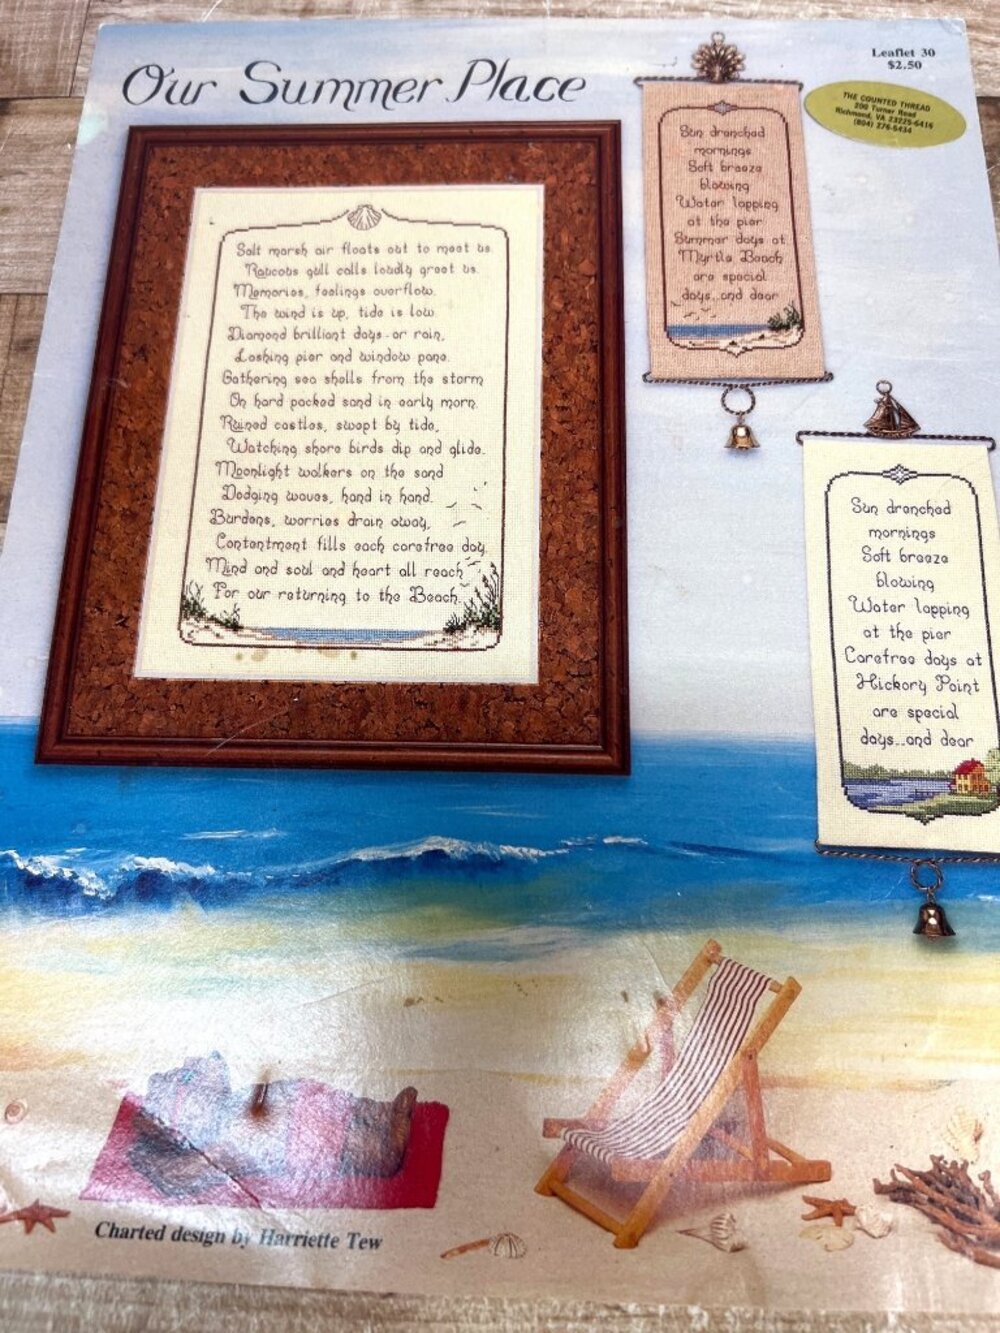 Our Summer Place
Leaflet 30
$2.50
THE COUNTED THREAD
200 Turner Road
Richmond, VA 23225-6416
(804) 276-6434
Salt marsh air floats out to meet us.
Raucous gull calls loudly greet us.
Memories, feelings overflow.
The wind is up, tide is low.
Diamond brilliant days-or rain,
Lashing pier and window pane.
Gathering sea shells from the storm
On hard packed sand in early morn.
Ruined castles, swept by tide,
Watching shore birds dip and glide.
Moonlight walkers on the sand
Dodging waves, hand in hand.
Burdens, worries drain away,
Contentment fills each carefree day.
Mind and soul and heart all reach
For our returning to the Beach.
Sun drenched
mornings
Soft breeze
blowing
Water lapping
at the pier
Summer days at
Myrtle Beach
are special
days..and dear
Sun drenched
mornings
Soft breeze
blowing
Water lapping
at the pier
Carefree days at
Hickory Point
are special
days..and dear
Charted design by Harriette Tew